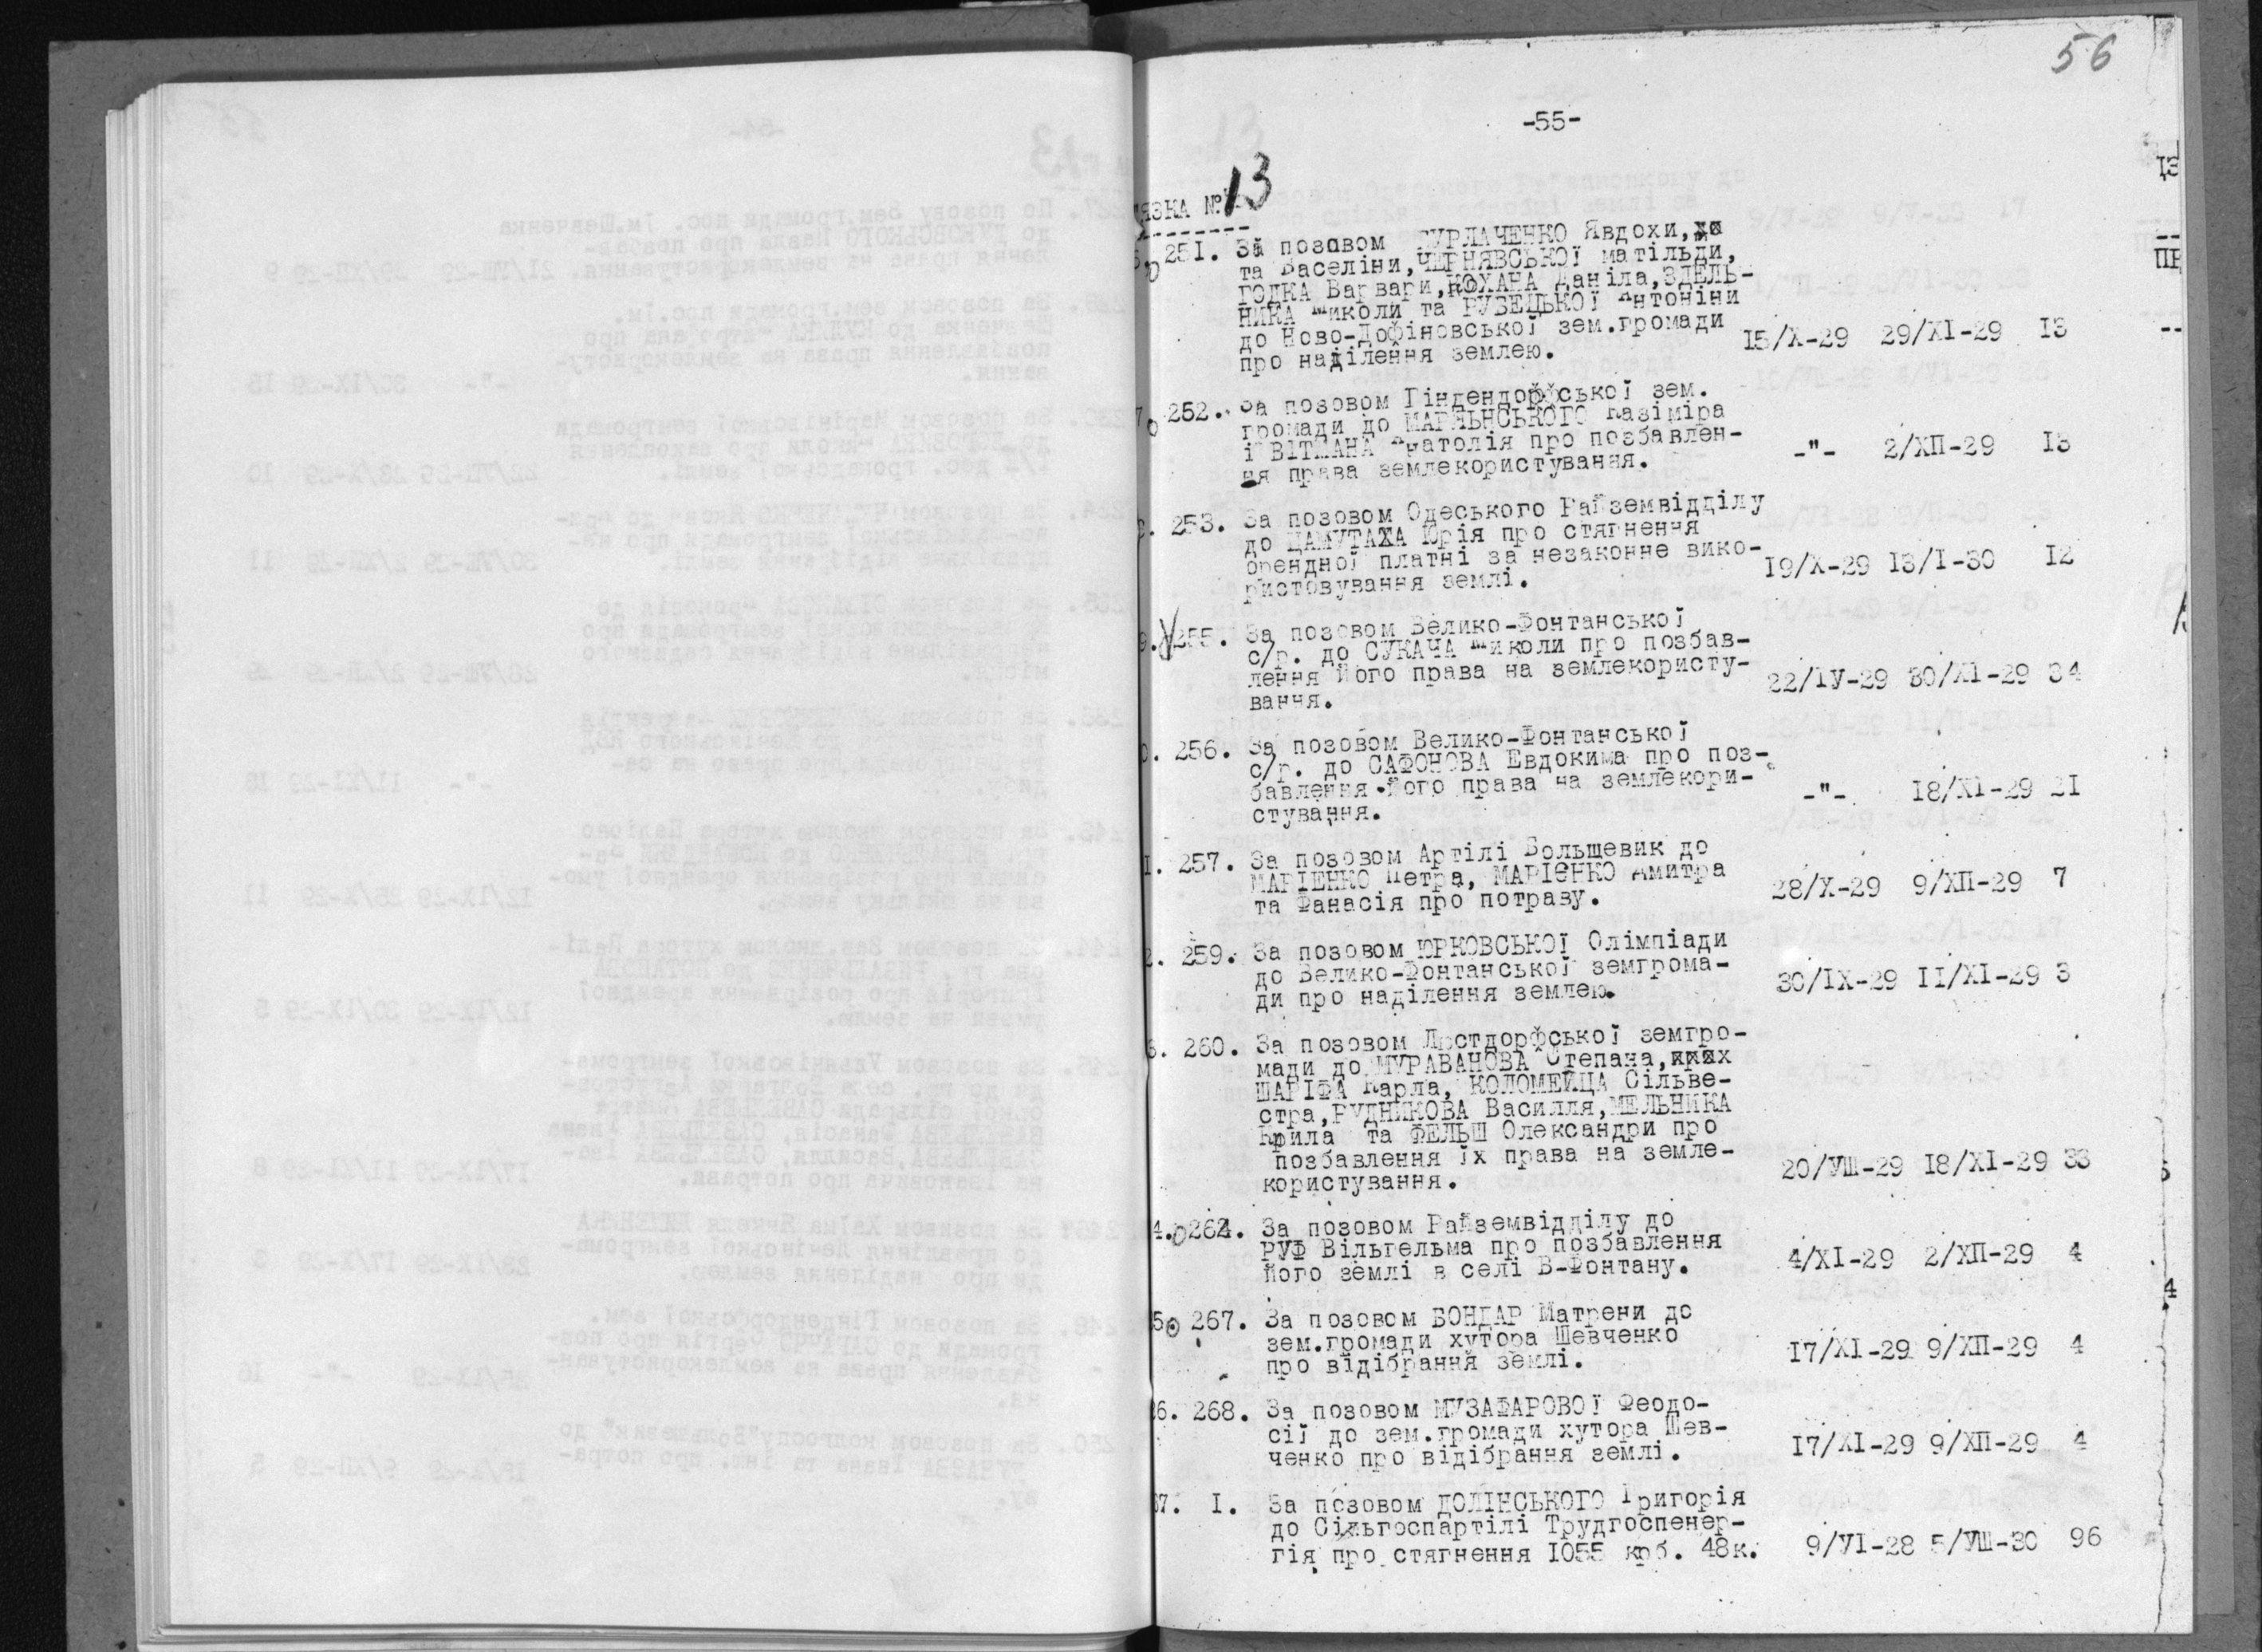 56
-55-
ЯЗКА № 13
251. За позовом ГУРЛАЧЕНКО Явдохи,
та Васеліни, ЧЕРНЯВСЬКОЇ матільди,
ГОДКА Варвари, КОХАНА Даніла, ЗДЕЛЬ-
НИКА Миколи та РУБЕЦЬКОЇ Антоніни
до Ново-Дофіновської зем.громади
про наділення землею. 15/X-29 29/XI-29 13
252. За позовом Гіндендорфської зем.
громади до МАРЯЬНСЬКОГО Казіміра
і ВІТМАНА Анатолія про позбавлен-
ня права землекористування. -"- 2/ХП-29 13
253. За позовом Одеського Райземвідділу
до ЦАМУТАХА Юрія про стягнення
орендної платні за незаконне вико-
ристовування землі. 19/X-29 13/I-30 12
255. За позовом Велико-Фонтанської
с/р. до СУКАЧА Миколи про позбав-
лення його права на землекористу-
вання. 22/ІУ-29 30/XI-29 34
256. За позовом Велико-Фонтанської
с/р. до САФОНОВА Евдокима про поз-
бавлення його права на землекори-
стування. -"- 18/XI-29 21
257. За позовом Артілі Большевик до
МАРІЕНКО Петра, МАРІЄНКО Дмитра
та Фанасія про потраву. 28/X-29 9/ХП-29 7
259. За позовом ЮРКОВСЬКОЇ Олімпіади
до Велико-Фонтанської земгрома-
ди про наділення землею. 30/IX-29 II/XI-29 3
260. За позовом Люстдорфської земгро-
мади до МУРАВАНОВА Степана,
ШАРІФА Карла, КОЛОМЕЙЦА Сільве-
стра, РУДНИКОВА Василля, МЕЛЬНИКА
Крила та ФЕЛЬШ Олександри про
позбавлення їх права на земле-
користування. 20/УШ-29 18/XI-29 33
4. 264. За позовом Райземвідділу до
РУФ Вільгельма про позбавлення
його землі в селі В-Фонтану. 4/XI-29 2/ХП-29 4
5. 267. За позовом БОНДАР Матрени до
зем.громади хутора Шевченко
про відібрання землі. 17/XI-29 9/ХП-29 4
6. 268. За позовом МУЗАФАРОВОЇ Феодо-
сії до зем.громади хутора Шев-
ченко про відібрання землі. 17/XI-29 9/ХП-29 4
7. I. За позовом ДОЛІНСЬКОГО Григорія
до Сільгоспартілі Трудгоспенер-
гія про стягнення 1055 крб. 48к. 9/УІ-28 5/УШ-30 96